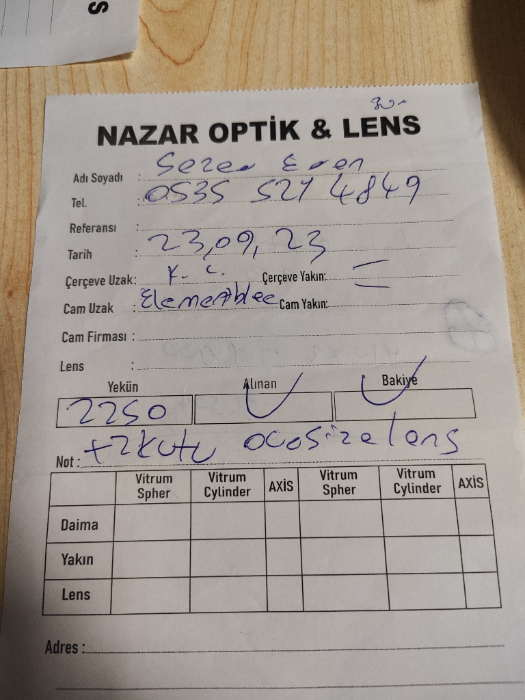 S
30.-
NAZAR OPTİK & LENS
Adı Soyadı : Sezen Eren
Tel. : 0535 527 4849
Referansı :
Tarih : 23,09,23
Çerçeve Uzak: K. C. Çerçeve Yakın:
Cam Uzak : Cam Yakın:
Cam Firması :
Lens :
Yekün Alınan Bakiye
2250
Not : +2 kutu lens
Vitrum Spher Vitrum Cylinder AXİS Vitrum Spher Vitrum Cylinder AXİS
Daima
Yakın
Lens
Adres :